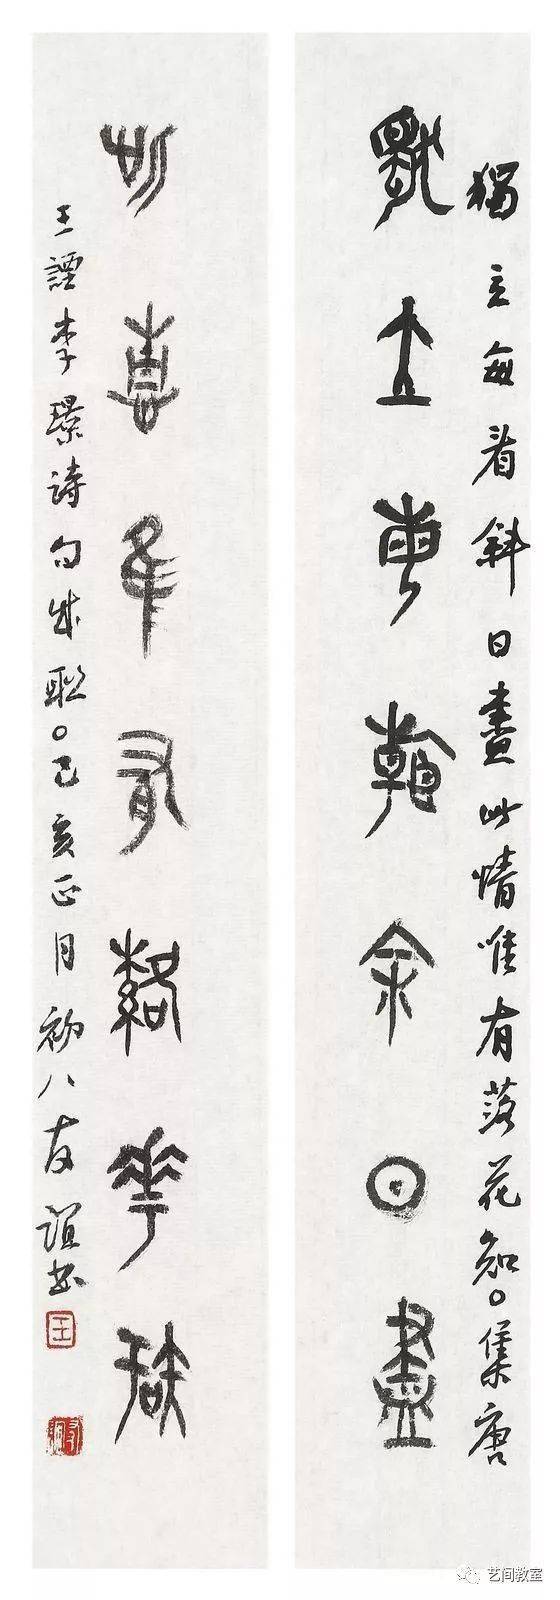 獨立每看斜日盡此情唯有落花知○集唐
獨立每看斜日盡
此情唯有落花知
王諲李璟詩句成聯○己亥正月初八友誼書
王
艺间教室